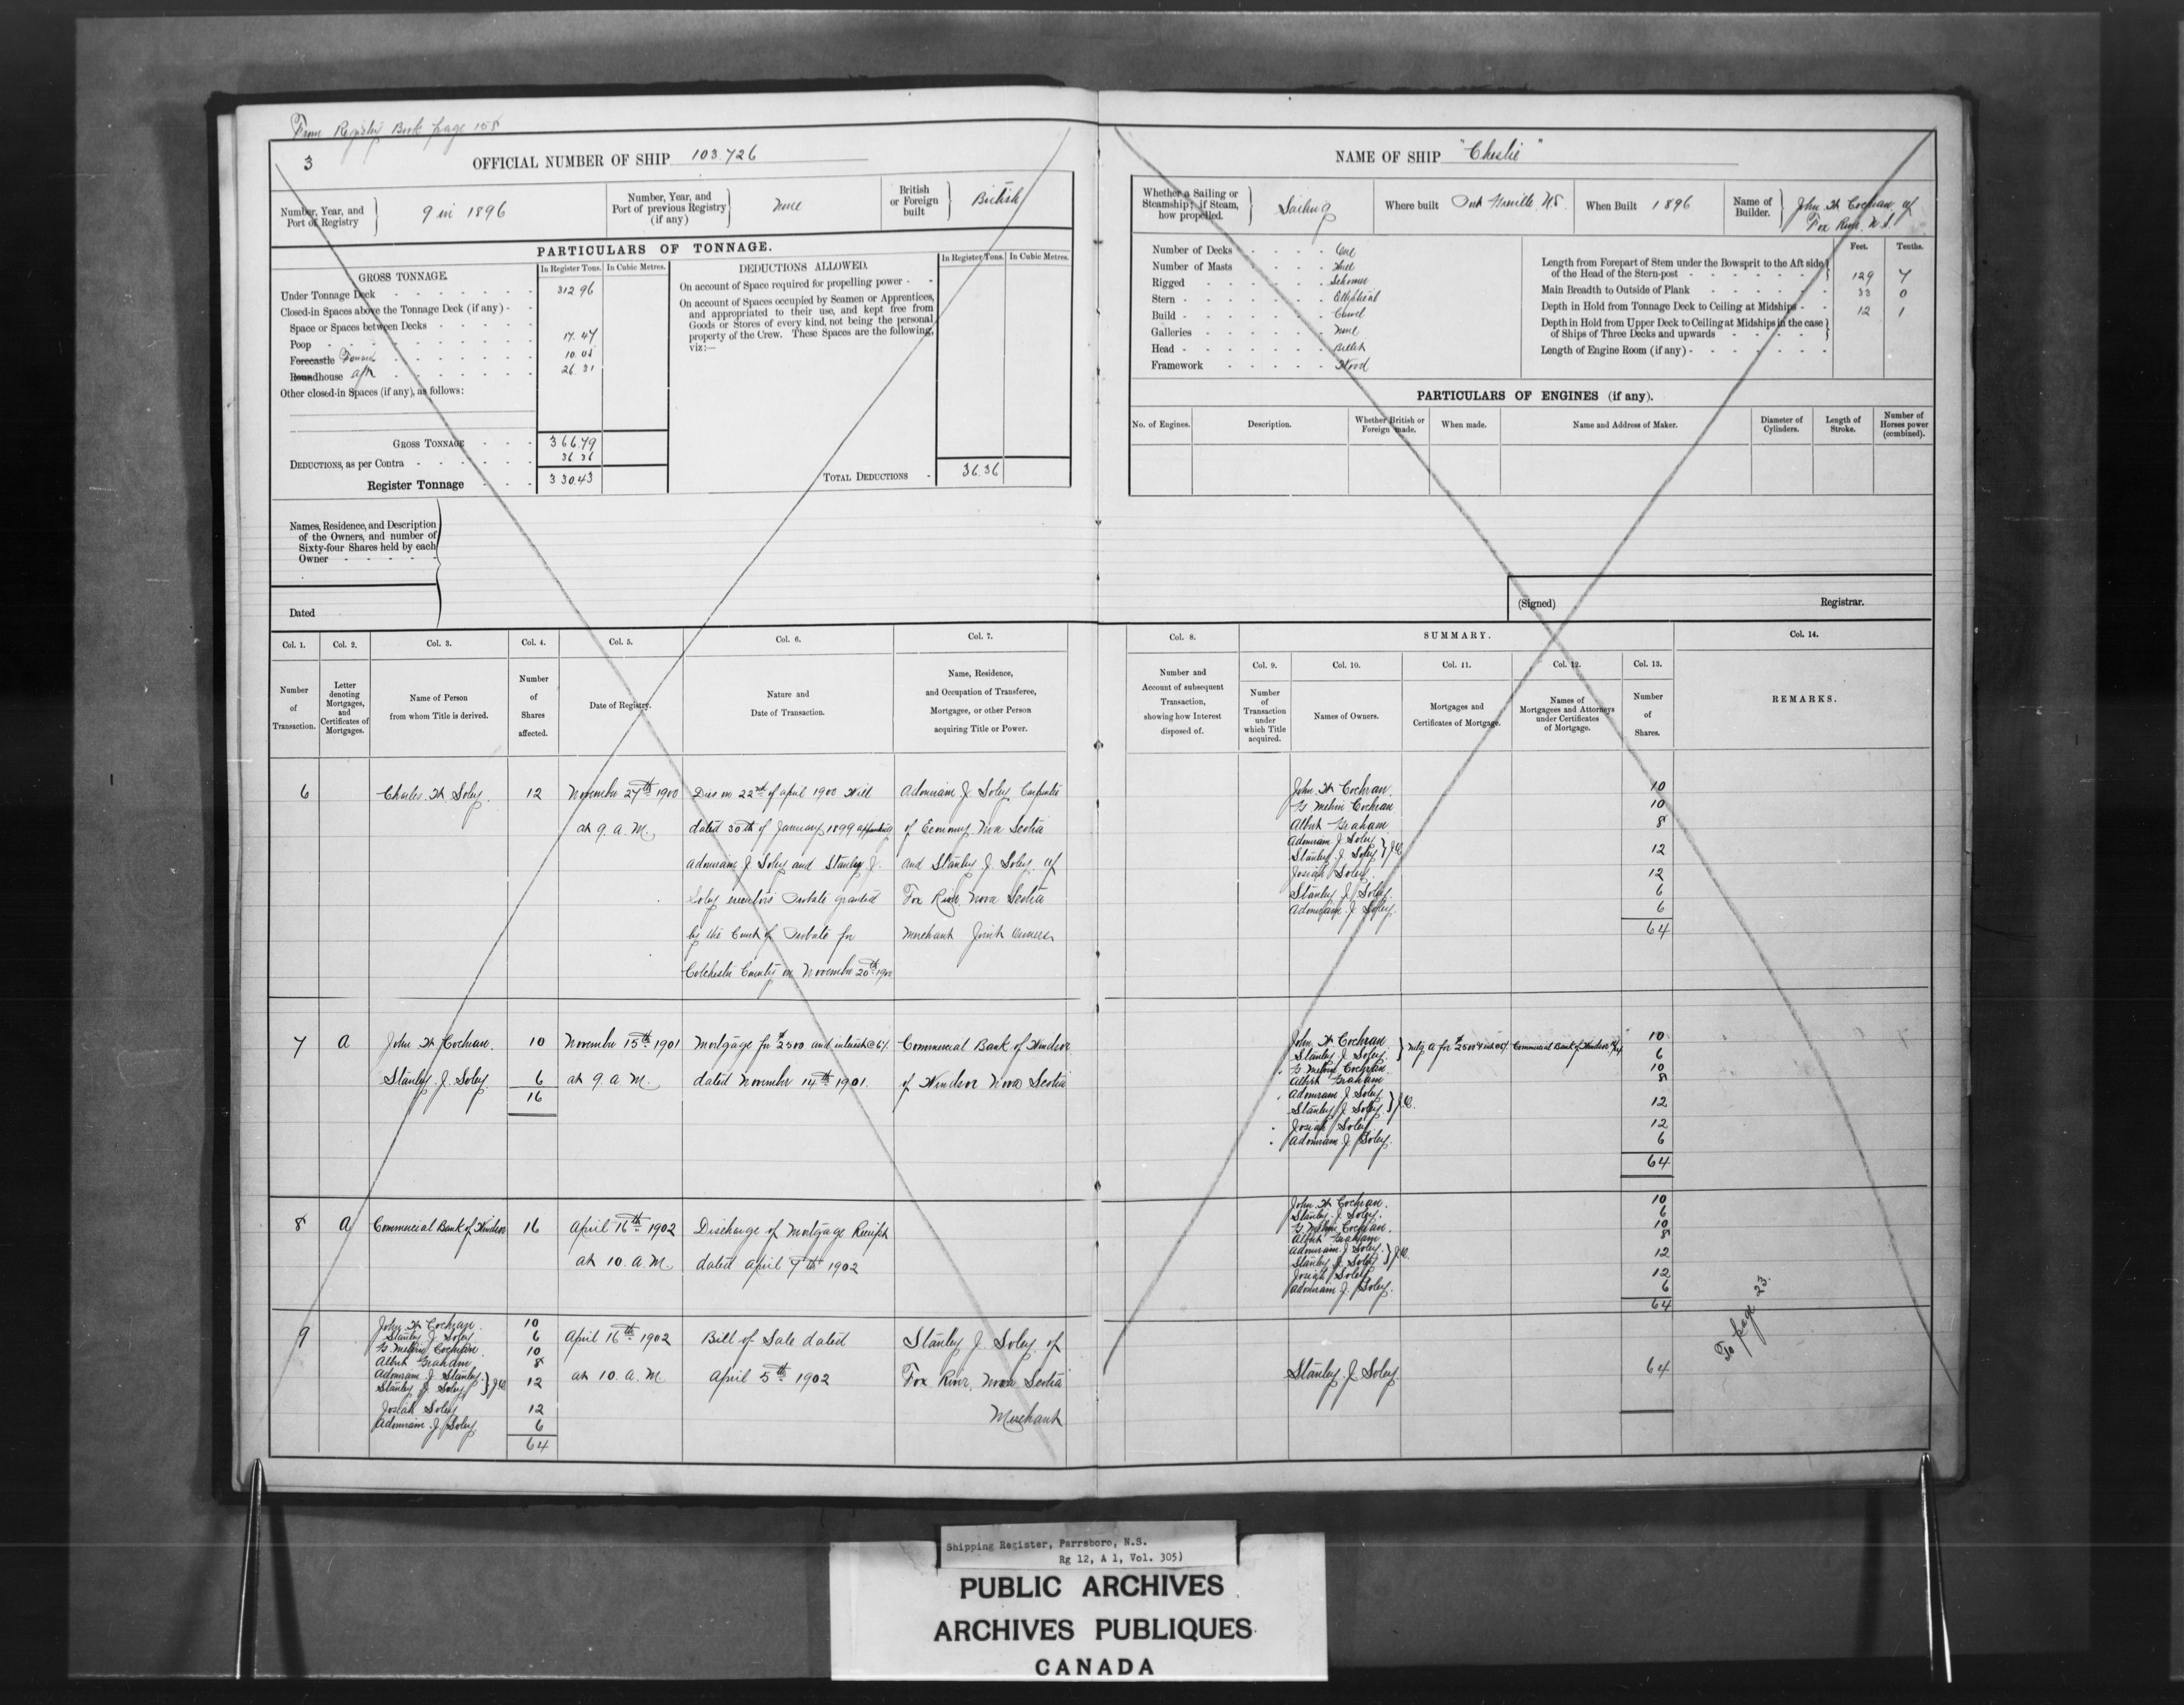 From Registry Book page 158
3
OFFICIAL NUMBER OF SHIP 103.726
Number, Year, and Port of Registry
9 in 1896
Number, Year, and Port of previous Registry (if any)
None
British or Foreign built
British
PARTICULARS OF TONNAGE.
GROSS TONNAGE.
In Register Tons. In Cubic Metres.
Under Tonnage Deck 312 96
Closed-in Spaces above the Tonnage Deck (if any)
Space or Spaces between Decks
Poop 17.47
Forecastle Forward 10 05
Roundhouse aft 26.31
Other closed-in Spaces (if any), as follows:
GROSS TONNAGE 366.79
DEDUCTIONS, as per Contra 36 36
Register Tonnage 330.43
DEDUCTIONS ALLOWED.
In Register Tons. In Cubic Metres.
On account of Space required for propelling power
On account of Spaces occupied by Seamen or Apprentices,
and appropriated to their use, and kept free from
Goods or Stores of every kind, not being the personal
property of the Crew. These Spaces are the following,
viz:—
TOTAL DEDUCTIONS 36.36
Names, Residence, and Description
of the Owners, and number of
Sixty-four Shares held by each
Owner
Dated
Col. 1. Col. 2. Col. 3. Col. 4. Col. 5. Col. 6. Col. 7.
Number of Transaction.
Letter denoting Mortgages, and Certificates of Mortgages.
Name of Person from whom Title is derived.
Number of Shares affected.
Date of Registry.
Nature and Date of Transaction.
Name, Residence, and Occupation of Transferee, Mortgagee, or other Person acquiring Title or Power.
6 Charles H Soley. 12 November 27th 1900 Dies on 22nd of April 1900 Will Adoniram J Soley Carpenter
at 9. a. M. dated 30th of January 1899 appointing of Economy Nova Scotia
Adoniram J Soley and Stanley J. and Stanley J. Soley of
Soley executors Probate granted Fox River Nova Scotia
by the Court of Probate for Merchant Joint Owners
Colchester County on November 20th 1900
7 A John H Cochran. 10 November 15th 1901 Mortgage for $2500 and interest @ 6%. Commercial Bank of Windsor
Stanley. J. Soley. 6 at 9 a. M. dated November 14th 1901. of Windsor Nova Scotia
16
8 A Commercial Bank of Windsor 16 April 16th 1902 Discharge of Mortgage Receipt
at 10. a. M. dated April 7th 1902
9 John H Cochran. 10
Stanley J. Soley 6
G. Melvin Cochran. 10
Albert Graham 8
Adoniram J. Stanley.
Stanley J. Soley } J.O. 12
Josiah Soley 12
Adoniram J. Soley 6
64
April 16th 1902
at 10. a. M.
Bill of Sale dated
April 5th 1902
Stanley J. Soley of
Fox River, Nova Scotia
Merchant
NAME OF SHIP "Cheslie"
Whether a Sailing or Steamship; if Steam, how propelled.
Sailing
Where built Port Greville N.S.
When Built 1896
Name of Builder.
John H Cochran of
Fox River. N.S.
Number of Decks One
Number of Masts Three
Rigged Schooner
Stern Elliptical
Build Carvel
Galleries None
Head Billet
Framework Wood
Feet. Tenths.
Length from Forepart of Stem under the Bowsprit to the Aft side
of the Head of the Stern-post 129 7
Main Breadth to Outside of Plank 33 0
Depth in Hold from Tonnage Deck to Ceiling at Midships 12 1
Depth in Hold from Upper Deck to Ceiling at Midships in the case
of Ships of Three Decks and upwards
Length of Engine Room (if any)
PARTICULARS OF ENGINES (if any).
No. of Engines. Description. Whether British or Foreign made. When made. Name and Address of Maker. Diameter of Cylinders. Length of Stroke. Number of Horses power (combined).
(Signed) Registrar.
Col. 8. SUMMARY. Col. 14.
Col. 9. Col. 10. Col. 11. Col. 12. Col. 13.
Number and Account of subsequent Transaction, showing how Interest disposed of.
Number of Transaction under which Title acquired.
Names of Owners.
Mortgages and Certificates of Mortgage.
Names of Mortgagees and Attorneys under Certificates of Mortgage.
Number of Shares.
REMARKS.
John H Cochran. 10
G Melvin Cochran 10
Albert Graham 8
Adoniram J Soley
Stanley J. Soley } J.O. 12
Josiah Soley. 12
Stanley J Soley. 6
Adoniram. J Soley. 6
64
John H Cochran 10
Stanley J. Soley. } Mtg A for $2500 & int 6% Commercial Bank of Windsor 6
G Melvin Cochran. 10
Albert Graham 8
Adoniram J Soley
Stanley J Soley } J.O. 12
Josiah Soley 12
Adoniram J. Soley. 6
64
John H Cochran. 10
Stanley J. Soley. 6
G. Melvin Cochran. 10
Albert Graham 8
Adoniram J. Soley.
Stanley J. Soley } J.O. 12
Josiah Soley 12
Adoniram J. Soley. 6
64
Stanley. J Soley. 64
To page 23.
Shipping Register, Parrsboro, N.S.
Rg 12, A 1, Vol. 305)
PUBLIC ARCHIVES
ARCHIVES PUBLIQUES
CANADA